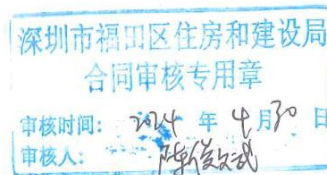 深圳市福田区住房和建设局
合同审核专用章
审核时间: 2024 年 4月30 日
审核人: 陈俊武